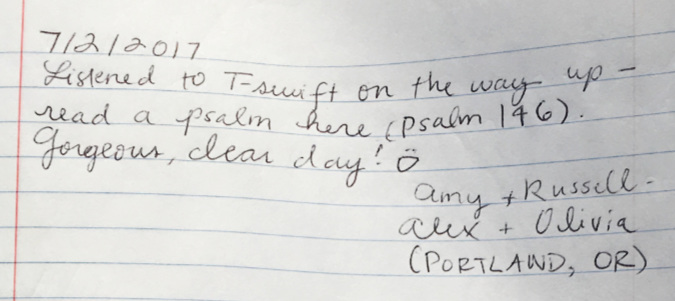 7/2/2017
Listened to T-swift on the way up -
read a psalm here (psalm 146).
Gorgeous, clear day! Ö
amy + Russell -
alex + Olivia
(PORTLAND, OR)